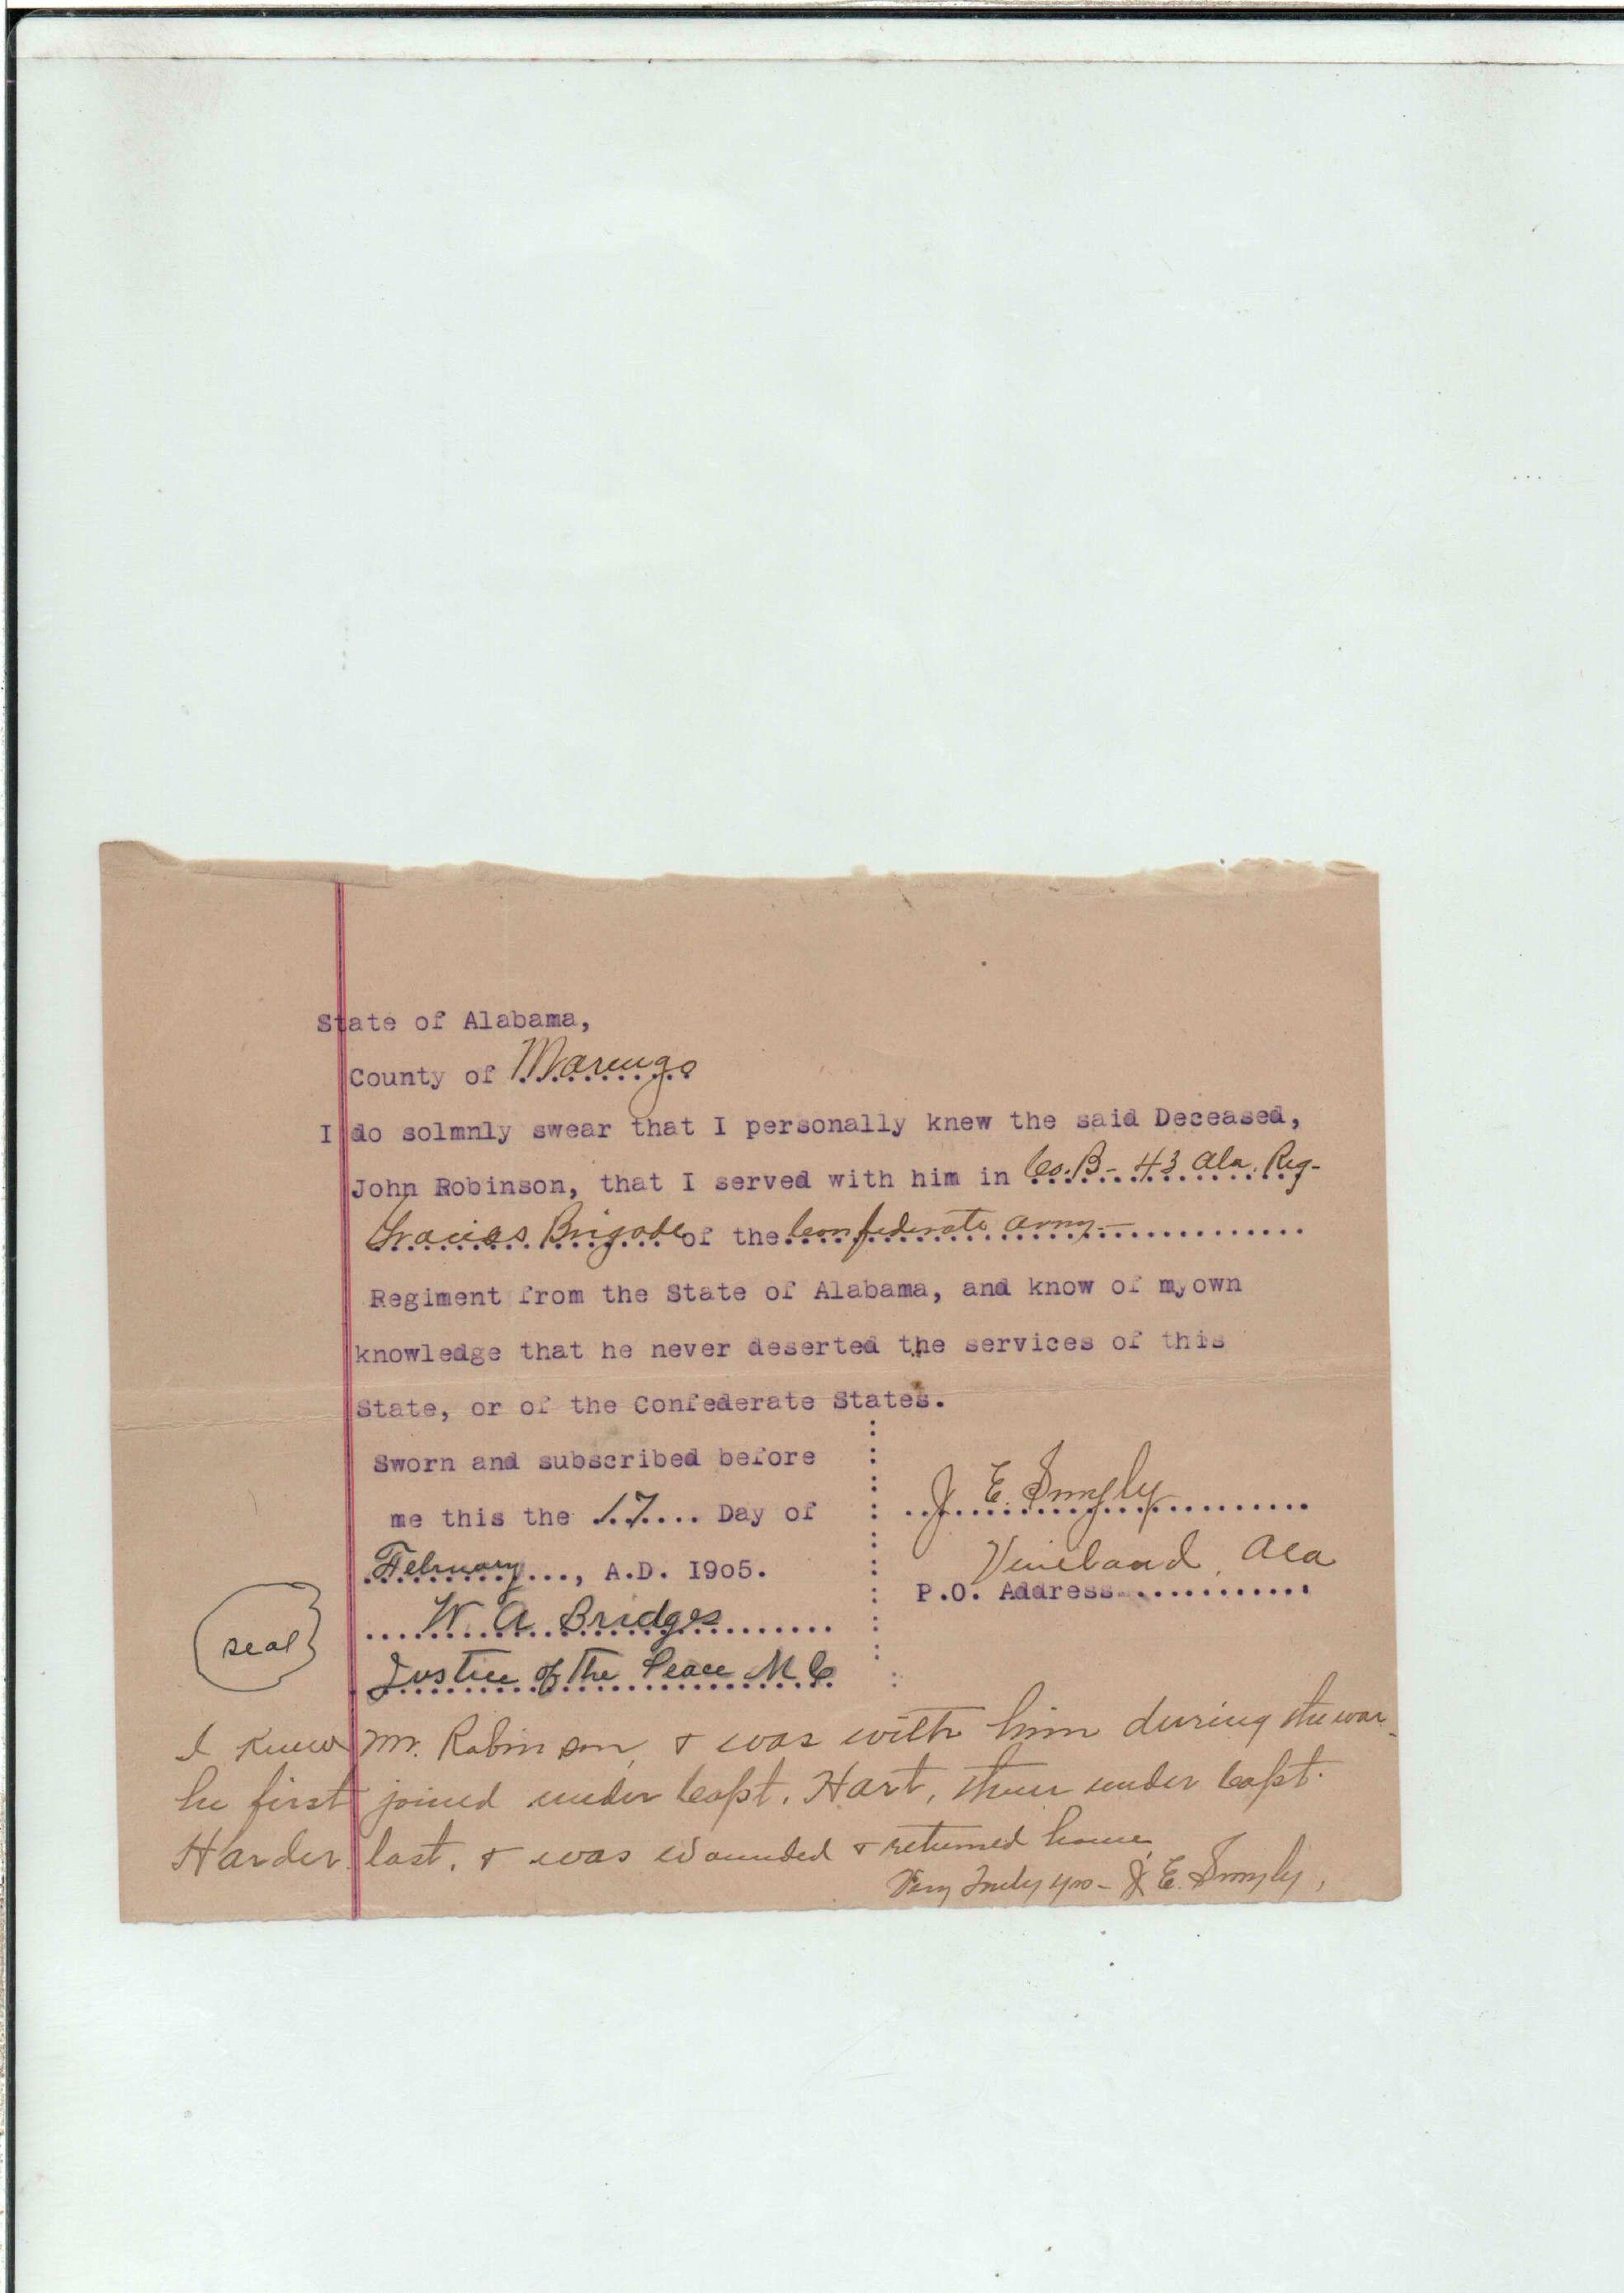 State of Alabama,
County of Marengo
I do solmnly swear that I personally knew the said Deceased,
John Robinson, that I served with him in Co. B- 43 Ala. Reg-
Gracies Brigade of the Confederate army-
Regiment from the State of Alabama, and know of my own
knowledge that he never deserted the services of this
State, or of the Confederate States.
Sworn and subscribed before
me this the 17 Day of
February, A.D. 1905.
W. A Bridges
Justice of the Peace M C
seal
J E.
Vineland, Ala
P.O. Address
I knew Mr. Robinson, & was with him during the war-
he first joined under Capt. Hart, then under Capt.
Harder last, & was wounded & returned home,
Very Truly yrs- J. E.